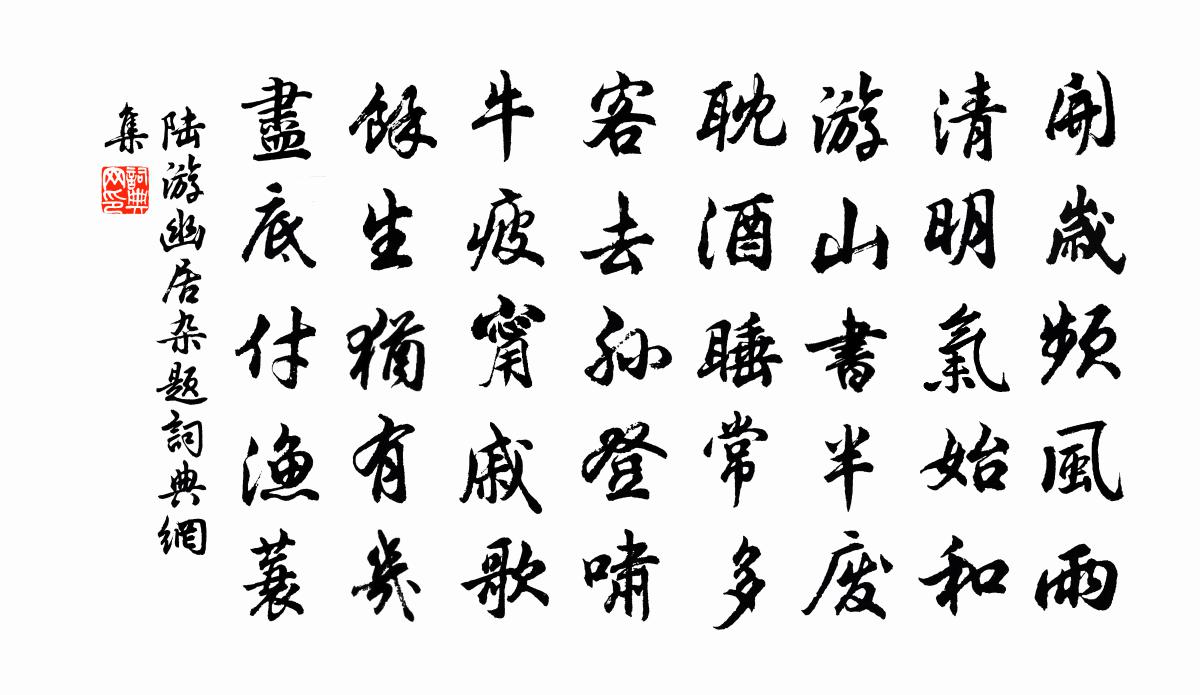 開歲頻風雨
清明氣始和
游山書半廢
耽酒睡常多
客去孫登嘯
牛疲甯戚歌
餘生猶有幾
盡底付漁蓑
陆游幽居杂题詞典網
集
詞典
网印